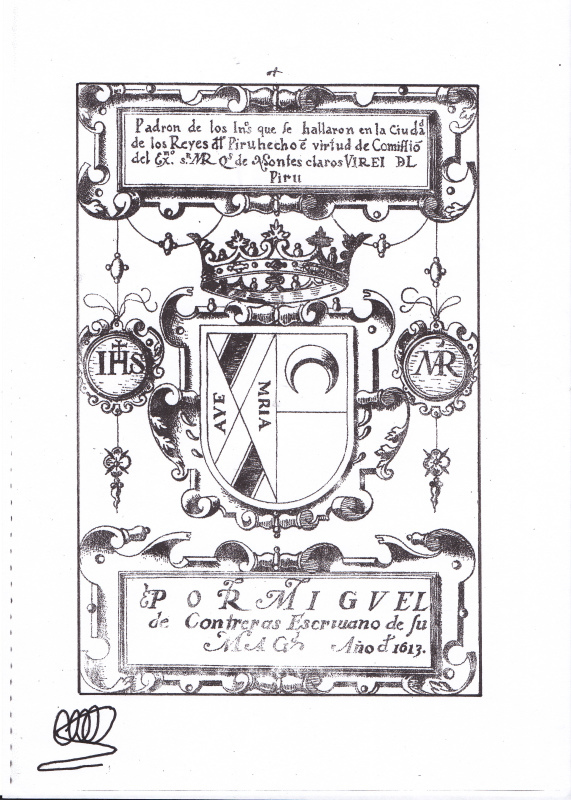 Padron de los Inº˙s que se hallaron en la Ciudad
de los Reyes dl Piru hecho ē virtud de Comissiō
del Exº. sr MR Qs de Montes claros VIREI DL
Piru
IHS
MR
AVE MRIA
POR MIGVEL
de Contreras Escriuano de su
MAGd Año d 1613.